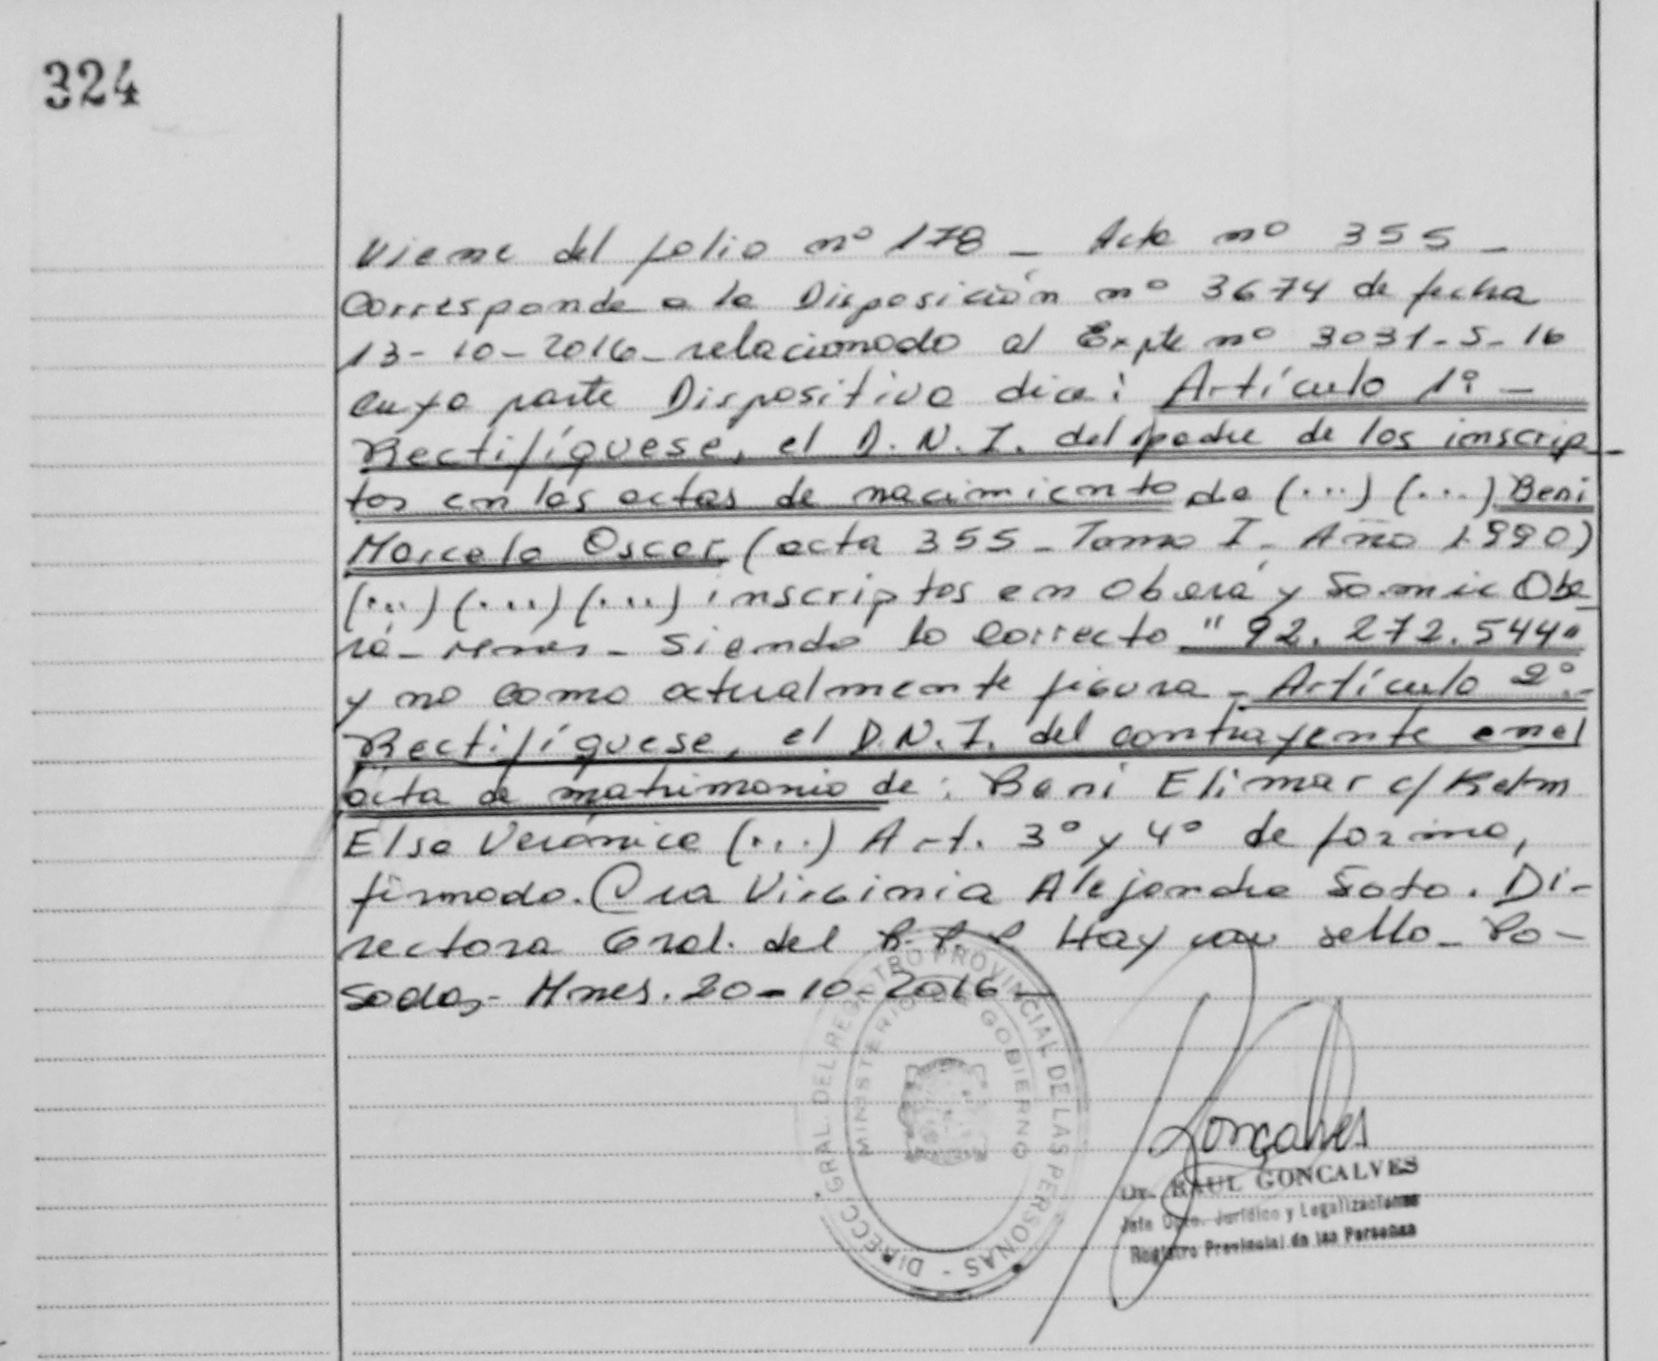 324
Viene del folio nº 178 - Acta nº 355 -
Corresponde a la Disposición nº 3674 de fecha
13-10-2016 - relacionado al Expte nº 3031-S-16
cuya parte Dispositiva dice: Artículo 1º -
Rectifíquese, el D.N.I. del padre de los inscrip-
tos en las actas de nacimiento de (...) (...) Beni
Marcelo Oscar (acta 355 - Tomo I - Año 1990)
(...) (...) (...) inscriptos en Oberá y Samic Obe-
rá - Mnes - Siendo lo correcto "92.272.544"
y no como actualmente figura - Artículo 2º -
Rectifíquese, el D.N.I. del contrayente en el
acta de matrimonio de: Beni Elimar c/
Elsa Verónica (...) Art. 3º y 4º de forma,
firmado. Virginia Alejandra Soto. Di-
rectora Gral. del R.P.P. Hay un sello - Po-
sadas - Mnes. 20-10-2016 -
DIRECC. GRAL. DEL REGISTRO PROVINCIAL DE LAS PERSONAS -
MINISTERIO DE GOBIERNO
Goncalves
Dr. RAUL GONCALVES
Jefe Dpto. Jurídico y Legalizaciones
Registro Provincial de las Personas